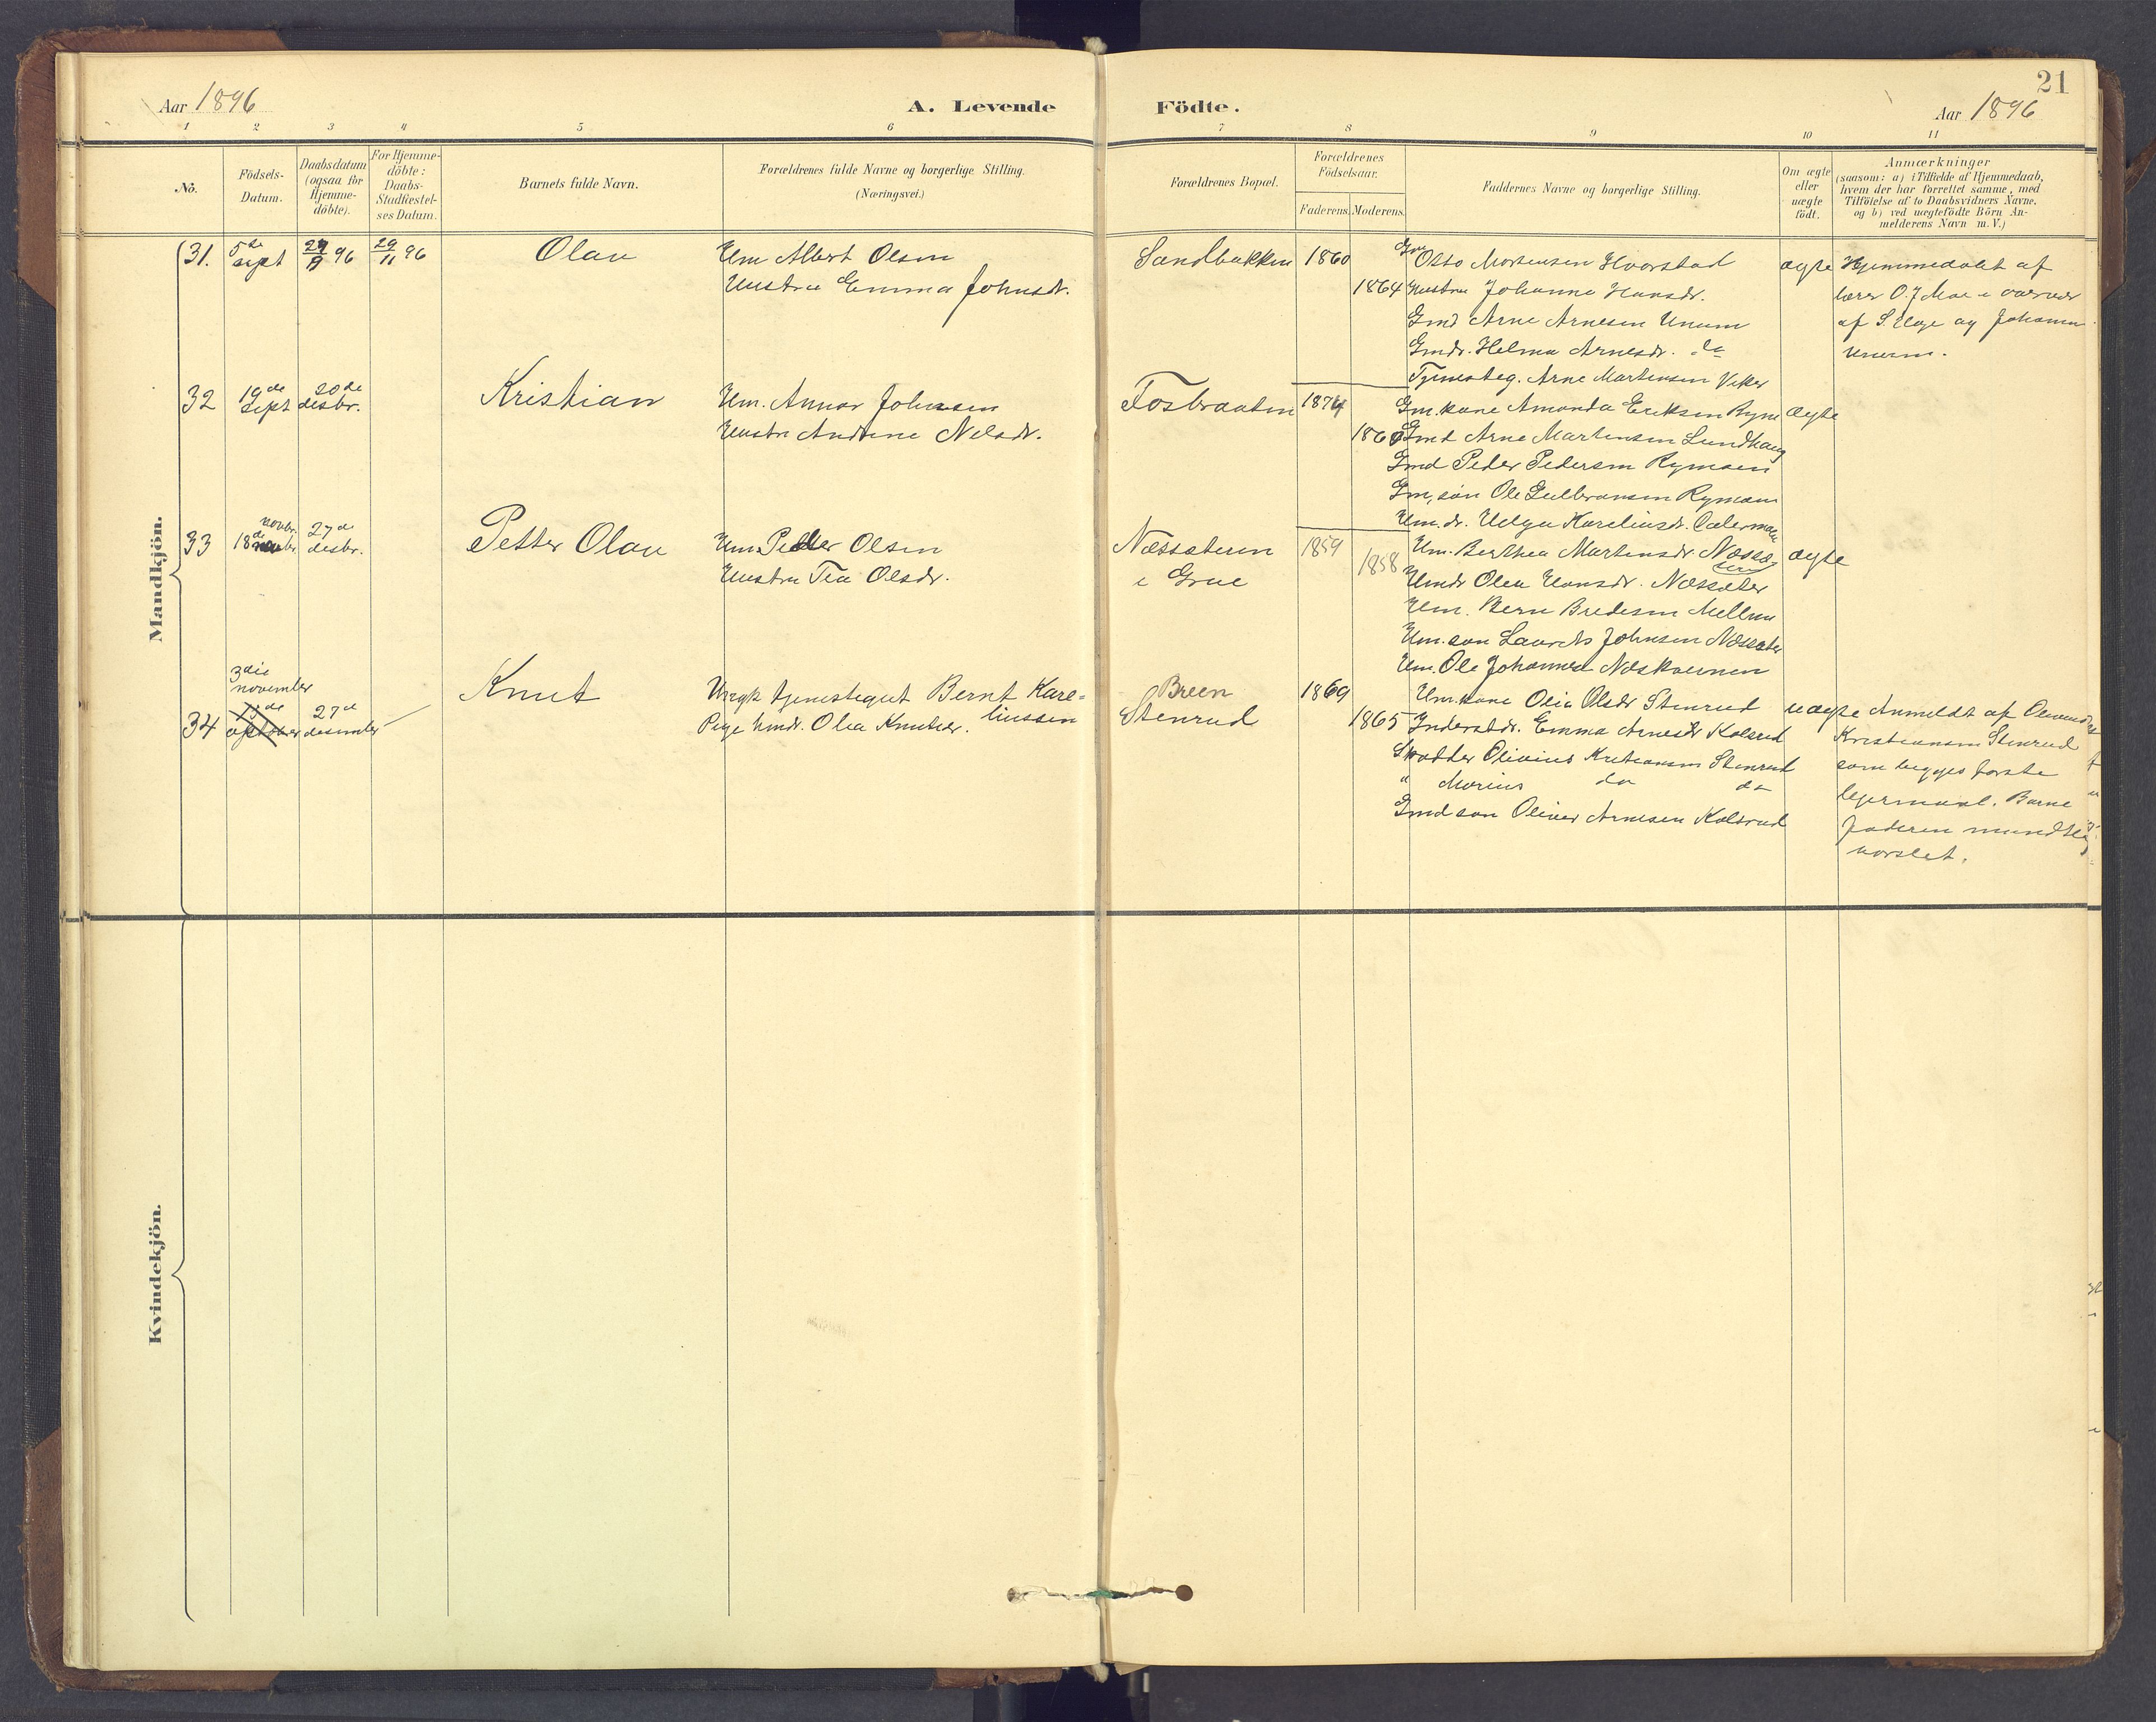 Aar 1896
A. Levende Födte.
21
Aar 1896
1 2 3 4 5 6 7 8 9 10 11
No.
Födsels-
Datum.
Daabsdatum
(ogsaa for
Hjemme-
döbte).
For Hjemme-
döbte:
Daabs-
Stadfæstel-
ses Datum.
Barnets fulde Navn.
Forældrenes fulde Navne og borgerlige Stilling.
(Næringsvei.)
Forældrenes Bopæl.
Forældrenes
Födselsaar.
Faderens. Moderens.
Faddernes Navne og borgerlige Stilling.
Om ægte
eller
uægte
födt.
Anmærkninger
(saasom: a) i Tilfælde af Hjemmedaab,
hvem der har forrettet samme, med
Tilföielse af to Daabsvidners Navne.
og b) ved uægtefödte Börn An-
melderens Navn m. V.)
Mandkjön.
31.
5de
sept
96
29/11 96
Olav
Hm Albert Olsen
Hustru Emma Johnsdr.
Sandbakken
1860
1864
Gm Otto Mortensen Hvorstad
Hustru Johanne Hansdr.
Gmd Arne Arnesen Unum
Gmdr. Helma Arnesdr. do
Tjenesteg. Arne Martinsen Viker
ægte
Hjemmedøbt af
lærer O. J. Moe i overvær
af S. Hoje og Johanne
Unum.
32
19de
sept
20de
desbr.
Kristian
Hm. Annar Johnsen
Hustru Andrine Nelsdr.
Fosbraaten
1874
Gm. kone Amanda Eriksen Rymoen
Gmd Arne Martinsen Lundhaug
Gmd Peder Pedersen Rymoen
Gm, søn Ole Gulbransen Rymoen
Hm. dr. Helga Kareliusdr.
ægte
33
novbr.
18de
27de
desbr.
Petter Olav
Hm. Petter Olsen
Hustru Tea Olsdr.
Næssæteren
i Grue
1859
1858
Hm. Berthea Martinsdr. Næssæ-
teren
Hmdr Olea Hansdr. Næssæter
Hm. Bern Bredesen Mellem
Hm. søn Laurits Johnsen Næssæter
Hm. Ole Johannese Næskvernen
ægte
34
3die
november
13de
oktober
27de
desember
Knut
Ungk tjenestegut Bernt Kare-
liussen
Pige Hmdr. Olea Knutsdr.
Breen
Stenrud
1869
1865
Hm. kone Olia Olsdr Stenrud
Inderstdr. Emma Arnesdr Kolsrud
Skrædder Olivius Kristiansen Stenrud
" Morius do do
Gmd søn Oliver Arnesen Kolsrud
uægte
Anmeldt af
Kristiansen Stenrud
som begges første
lejermaal. Barne
faderen mundtlig
varslet.
Kvindekjön.